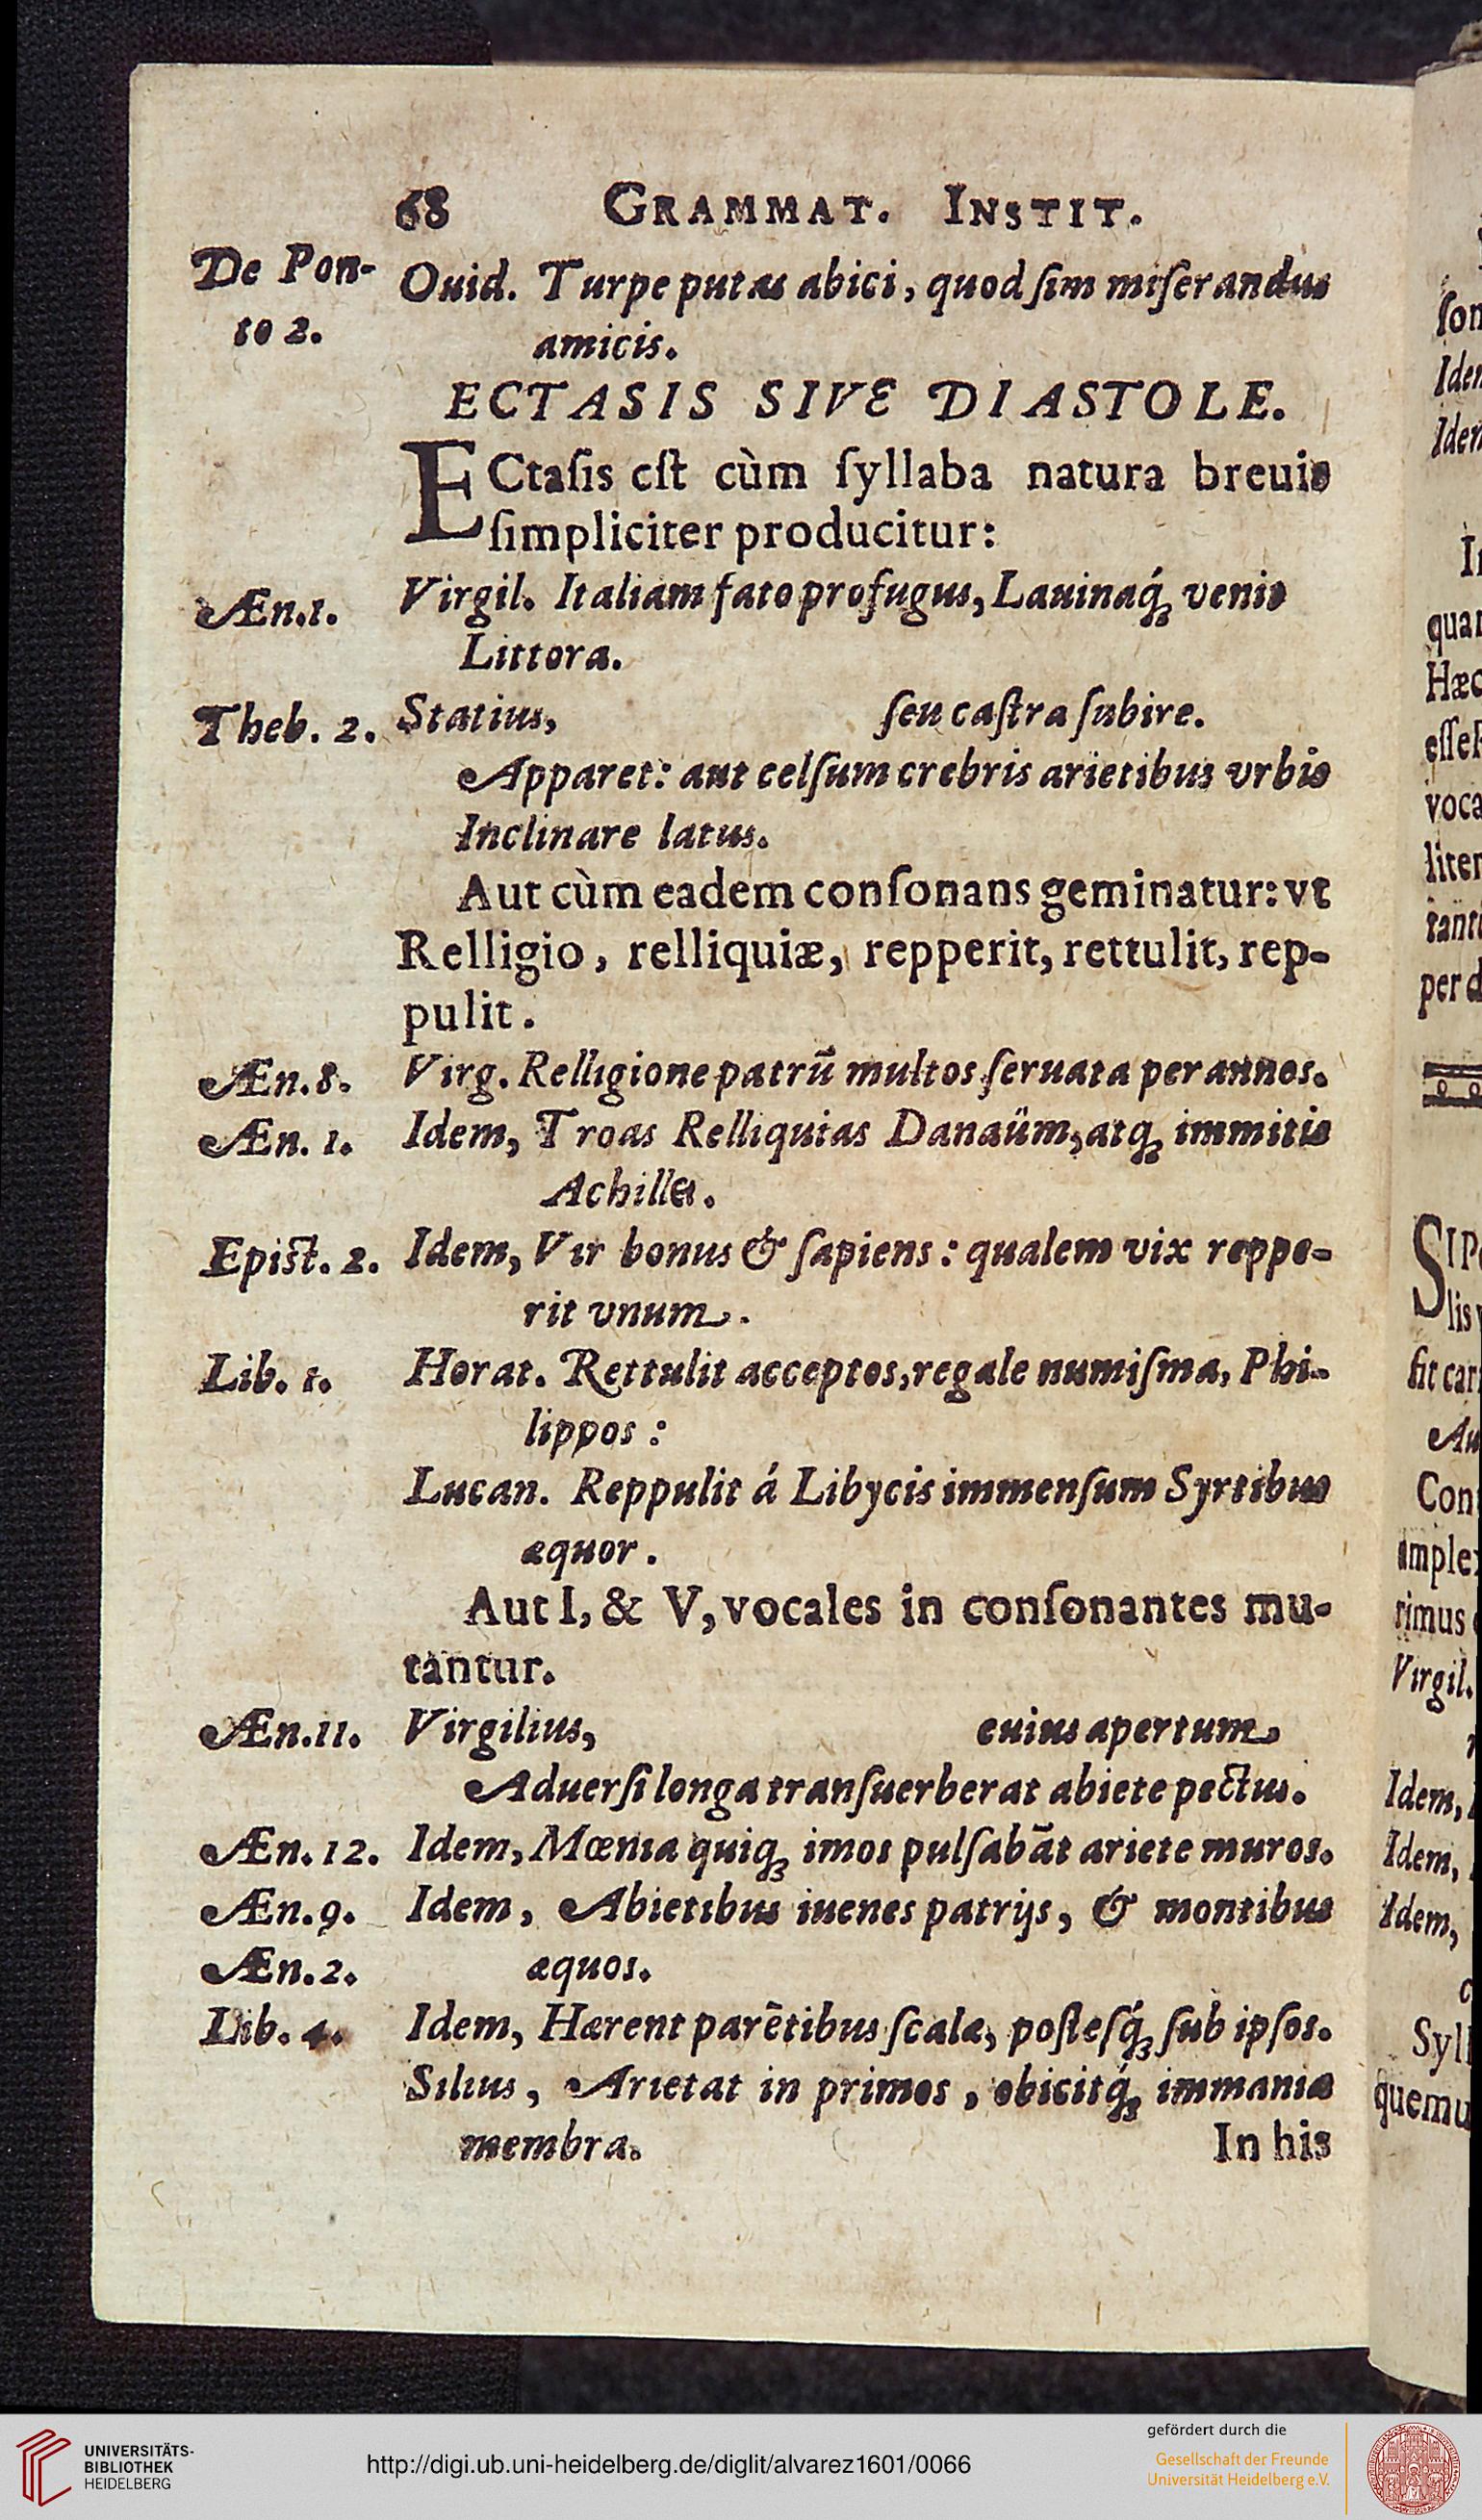 68 GRAMMAT. INSTIT.
De Pon-
to 2.
Ouid. Turpe putas abici, quod ſim miſerandus
amicis.
ECTASIS SIVE DIASTOLE.
ECtaſis eſt cùm ſyllaba natura breuis
ſimpliciter producitur:
Æn.1. Virgil. Italiam fato profugus, Lauinaq́ꝫ venis
Littora.
Theb. 2. Statius, ſeu caſtra ſubire.
Apparet: aut celſum crebris arietibus vrbis
Inclinare latus.
Aut cùm eadem conſonans geminatur: vt
Relligio, relliquiæ, repperit, rettulit, rep-
pulit.
Æn.8. Virg. Relligione patrũ multos ſeruata per annos.
Æn. 1. Idem, Troas Relliquias Danaüm, atqꝫ immitis
Achillei.
Epist. 2. Idem, Vir bonus & ſapiens: qualem vix reppe-
rit vnum.
Lib. 1. Horat. Rettulit acceptos, regale numiſma, Phi-
lippos:
Lucan. Reppulit á Libycis immenſum Syrtibus
æquor.
Aut I, & V, vocales in conſonantes mu-
tantur.
Æn.11. Virgilius, cuius apertum
Aduerſi longa tranſuerberat abiete pectus.
Æn. 12. Idem, Mœnia quiqꝫ imos pulſabãt ariete muros.
Æn.9. Idem, Abietibus iuenes patrijs, & montibus
Æn.2. æquos.
Lib. 4. Idem, Hærent parẽtibus ſcalæ, poſteſq́ꝫ ſub ipſos.
Silius, Arietat in primos, obicitq́ꝫ immania
membra. In his
ſon
Idem
Idem
quar
Hæc
voca
liter
tant
per d
lis
fit car
Con
imple
rimus
Virgil.
Idem,
Idem,
Idem,
Syll
quemu
UNIVERSITÄTS-
BIBLIOTHEK
HEIDELBERG
http://digi.ub.uni-heidelberg.de/diglit/alvarez1601/0066
gefördert durch die
Gesellschaft der Freunde
Universität Heidelberg e.V.